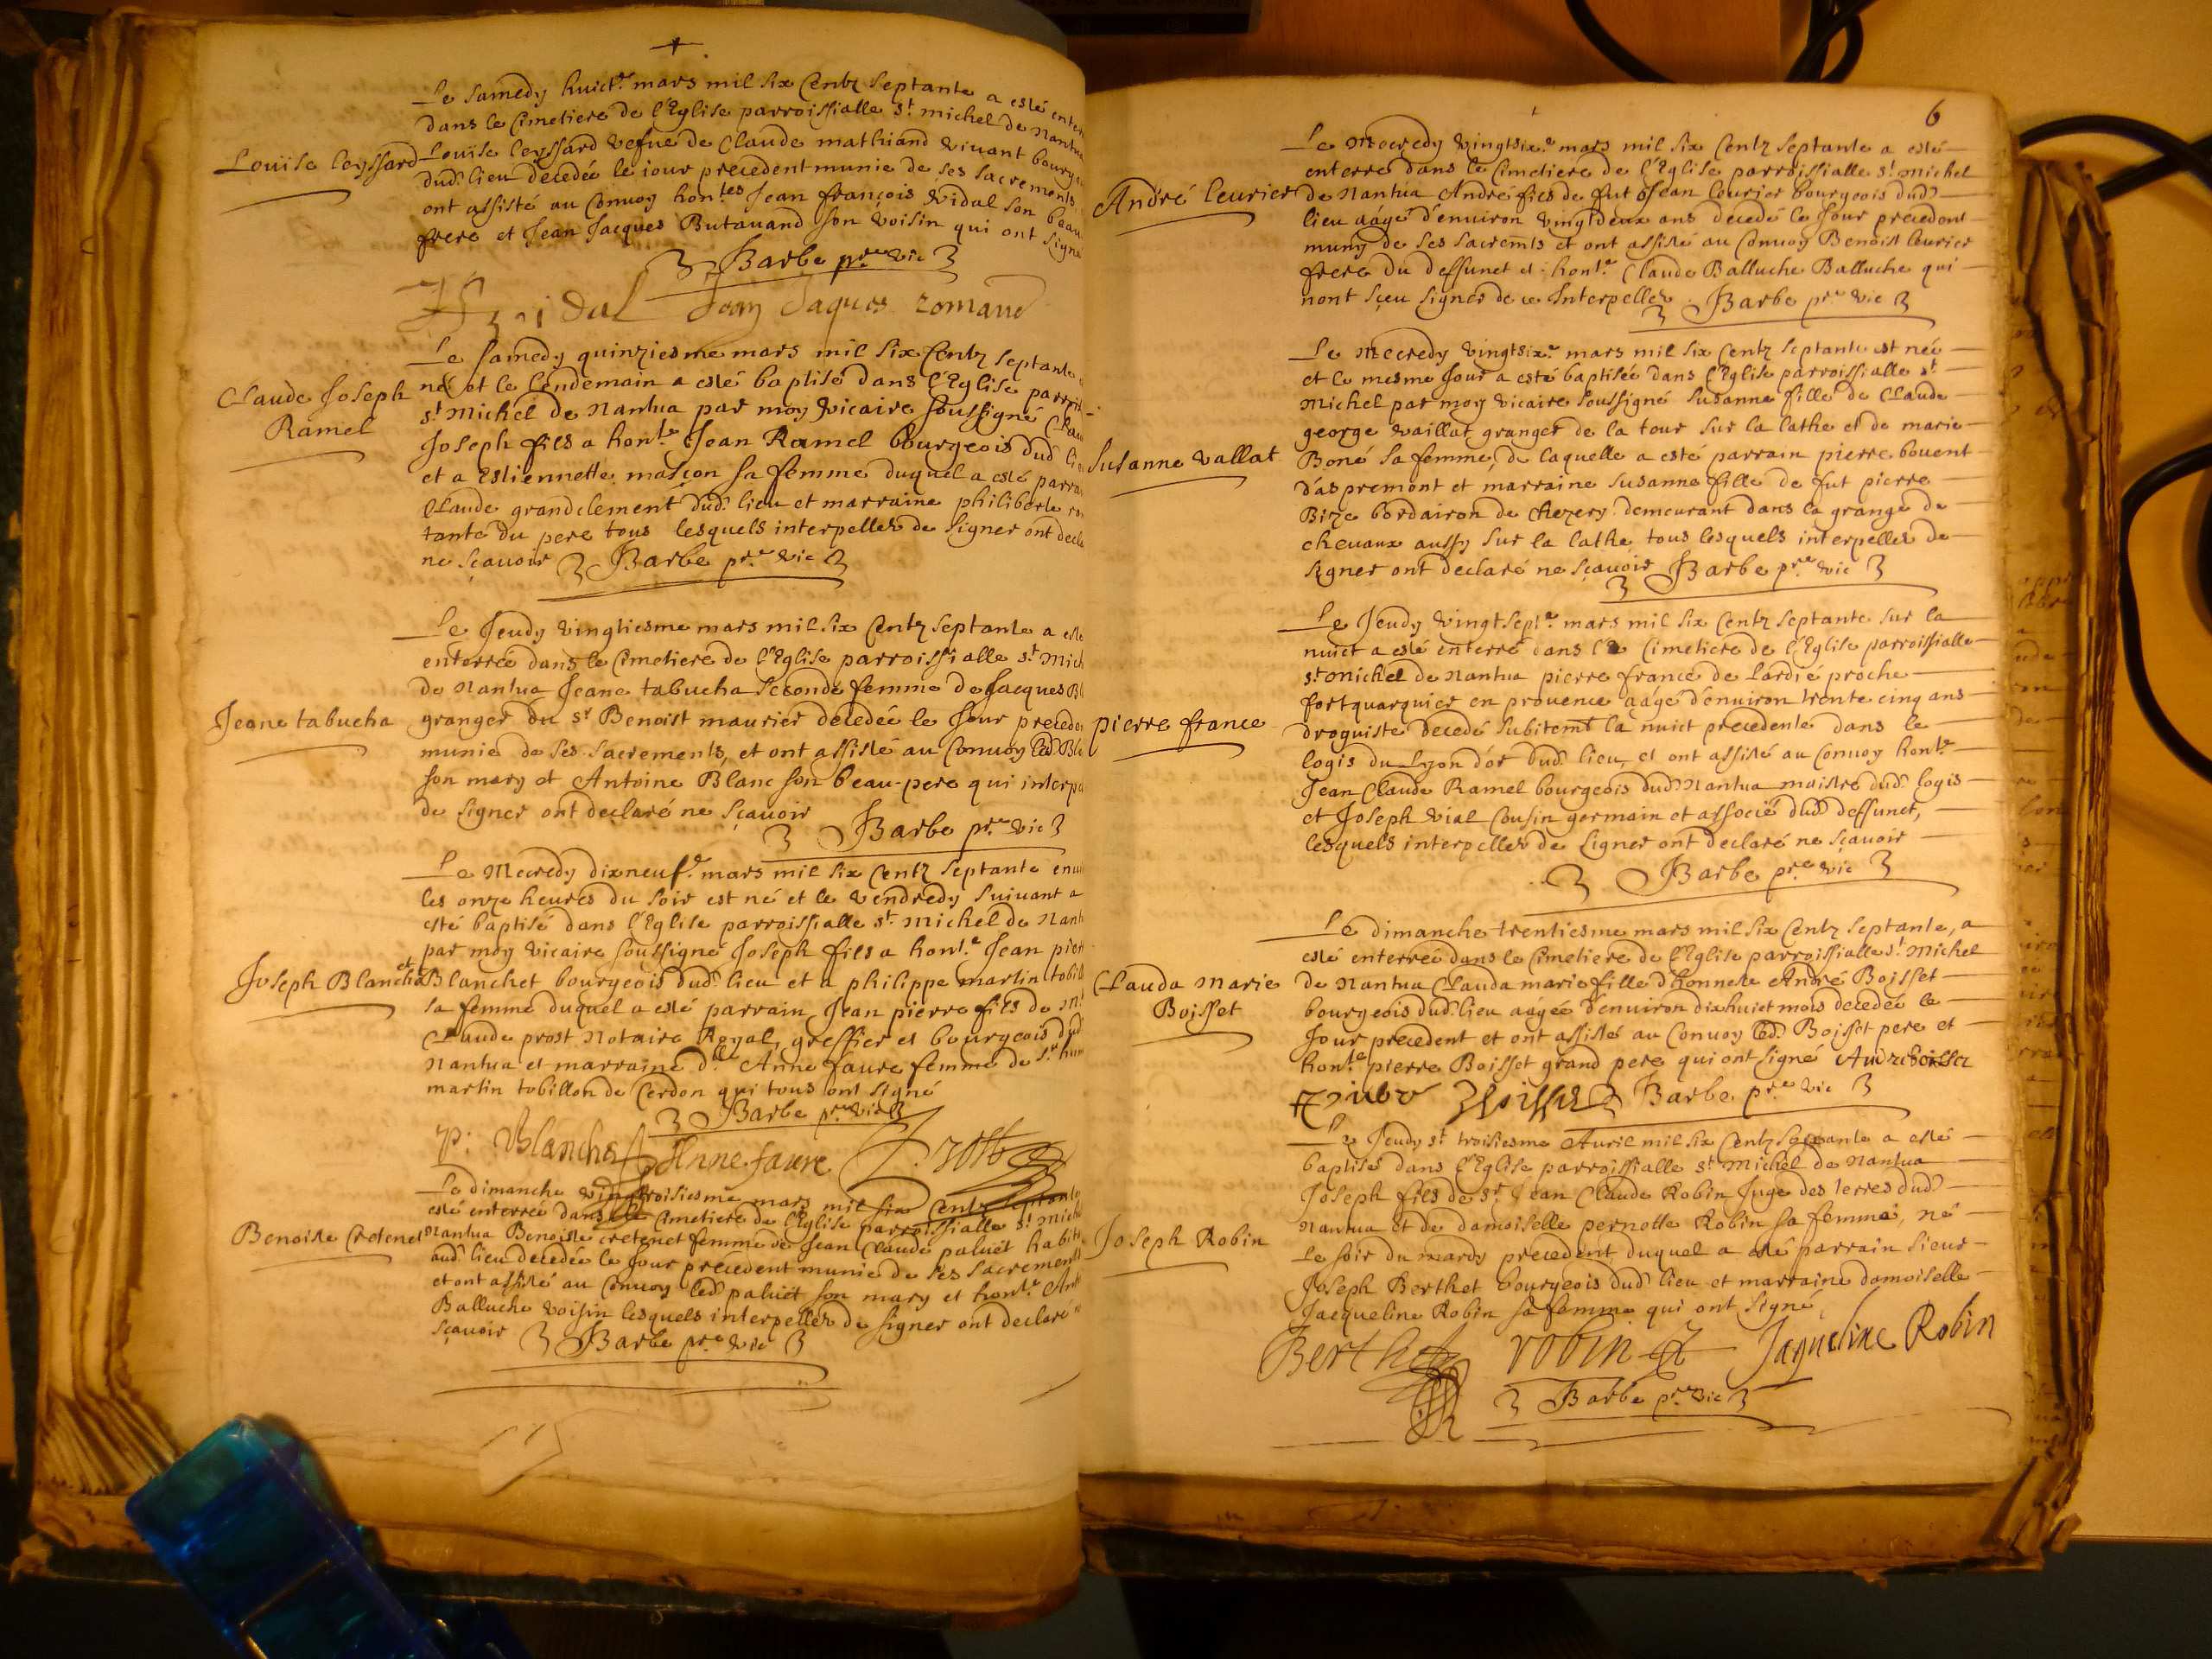 Le samedy huict.e mars mil six Centz septante a esté enter
dans le Cimetiere de l'Eglise parroissialle st michel de nantua
Louïse leyssard
Louïse leyssard vefue de Claude mathiand viuant bourge
dud. lieu decedée le iour precedent munie de ses sacrements
ont assisté au Conuoy hon.tes Jean françois vidal son beau
frere et Jean Jacques Butauand son voisin qui ont signé
Barbe pr.e vic
Jean Jaques
Le samedy quinziesme mars mil six Centz septante
Claude Joseph
Ramel
né et le lendemain a esté baptisé dans l'Eglise parrois
st Michel de Nantua par moy vicaire soussigné Clau
Joseph fils a hon.le Jean Ramel bourgeois dud li
et a Estiennette masson sa femme duquel a esté parra
Claude grandclement dud. lieu et marraine philiberte
tante du pere tous lesquels interpellez de signer ont decla
ne sçauoir Barbe pr.e vic
Le Jeudy vingtiesme mars mil six Centz septante a esté
enterrée dans le Cimetiere de l'Eglise parroissialle st Mich
de Nantua Jeane tabucha seconde femme de Jacques Bl
Jeane tabucha
granger du sr Benoist maurier decedée le Jour preceden
munie de ses sacrements, et ont assisté au Conuoy led Bla
son mary et Antoine Blanc son beau-pere qui interpe
de signer ont declaré ne sçauoir
Barbe pr.e vic
Le Mecredy dixneuf.e mars mil six Centz septante enui
les onze heures du soir est né et le vendredy suiuant a
esté baptisé dans l'Eglise parroissialle st michel de Nant
par moy vicaire soussigné Joseph fils a hon.le Jean pierr
Joseph Blanchet
Blanchet bourgeois dud. lieu et a philippe martin tobill
sa femme duquel a esté parrain Jean pierre fils de
Claude prost Notaire Royal, greffier et bourgeois dud
Nantua et marraine d.lle Anne faure femme de sr hum
martin tobillon de Cerdon qui tous ont signé
Barbe pr.e vic
P: Blanchet Anne faure
Le dimanche vingttroisiesme mars mil six Centz septante
esté enterrée dans le Cimetiere de l'Eglise parroissialle st mich
Benoiste Cretenet
Nantua Benoiste cretenet femme de Jean Claude paluët habita
aud. lieu decedée le Jour precedent munie de ses sacrements
et ont assisté au Conuoy led paluët son mary et hon.le Ant
Balluche voisin lesquels interpellez de signer ont declaré n
sçauoir Barbe pr.e vic
6
Le Mecredy vingtsix.e mars mil six Centz septante a esté
enterré dans le Cimetiere de l'Eglise parroissialle st michel
André leurier
de Nantua André fils de fut Jean leurier bourgeois dud
lieu aagé d'enuiron vingtdeux ans decedé le Jour precedent
muny de ses sacremts et ont assisté au Conuoy Benoist leurier
frere du deffunct et hon.le Claude Balluche Balluche qui
nont sçeu signer de ce Interpellez Barbe pr.e vic
Le Mecredy vingtsix.e mars mil six Centz septante est née
et le mesme Jour a esté baptisée dans l'Eglise parroissialle st
Michel par moy vicaire soussigné susanne fille de Claude
george vaillat granger de la tour sur la lathe et de marie
Susanne vallat
Boné sa femme, de laquelle a esté parrain pierre bouent
d'aspremont et marraine susanne fille de fut pierre
Bize bordairon de Chezery demeurant dans la grange de
cheuaux aussy sur la lathe tous lesquels interpellez de
signer ont declaré ne sçauoir Barbe pr.e vic
Le Jeudy vingtsept.e mars mil six Centz septante sur la
nuict a esté enterré dans le Cimetiere de l'Eglise parroissialle
st michel de Nantua pierre france de lardié proche
fortquarquier en prouence aagé d'enuiron trente cinq ans
pierre france
droguiste decedé subitemt la nuict precedente dans le
logis du Lyon d'or dud. lieu, et ont assisté au Conuoy hon.le
Jean Claude Ramel bourgeois dud Nantua maistre dud. logis
et Joseph vial Cousin germain et associé dud. deffunct,
lesquels interpellez de signer ont declaré ne sçauoir
Barbe pr.e vic
Le dimanche trentiesme mars mil six Centz septante, a
esté enterrée dans le Cimetiere de l'Eglise parroissialle st Michel
Clauda Marie
Boisset
de Nantua Clauda marie fille d'honneste André Boisset
bourgeois dud. lieu aagée d'enuiron dixhuict mois decedée le
Jour precedent et ont assisté au Conuoy led. Boisset pere et
hon.le pierre Boisset grand pere qui ont signé Andre boisset
Boisset Barbe pr.e vic
Le Jeudy st troisiesme Auril mil six Centz septante a esté
baptisé dans l'Eglise parroissialle st Michel de Nantua
Joseph fils de sr Jean Claude Robin Juge des terres dud
Joseph Robin
Nantua et de damoiselle pernette Robin sa femme, né
le soir du mardy precedent, duquel a esté parrain sieur
Joseph Berthet bourgeois dud. lieu et marraine damoiselle
Jacqueline Robin sa femme qui ont signé
Berthet robin Jaqueline Robin
Barbe pr.e vic